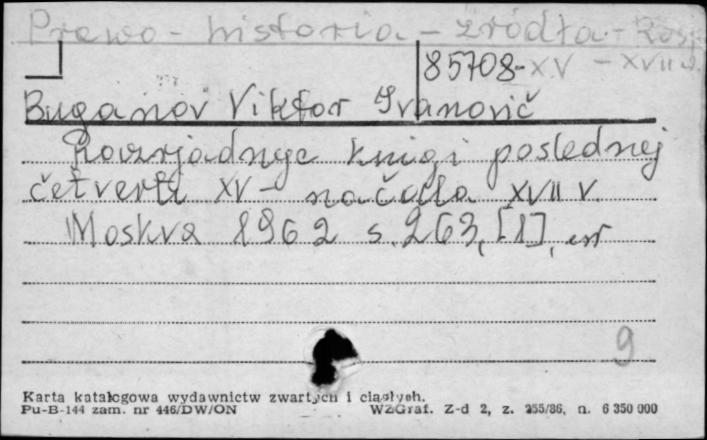 Prawo - historia - źródła - Rosja
85708 - XV - XVII w.
Buganov Viktor Ivanovič
Razrjadnye knigi poslednej
četverti XV - načala XVII v.
Moskva 1962 s. 263, [1], err
9
Karta katalogowa wydawnictw zwartych i ciągłych.
Pu-B-144 zam. nr 446/DW/ON WZGraf. Z-d 2, z. 255/86, n. 6 350 000